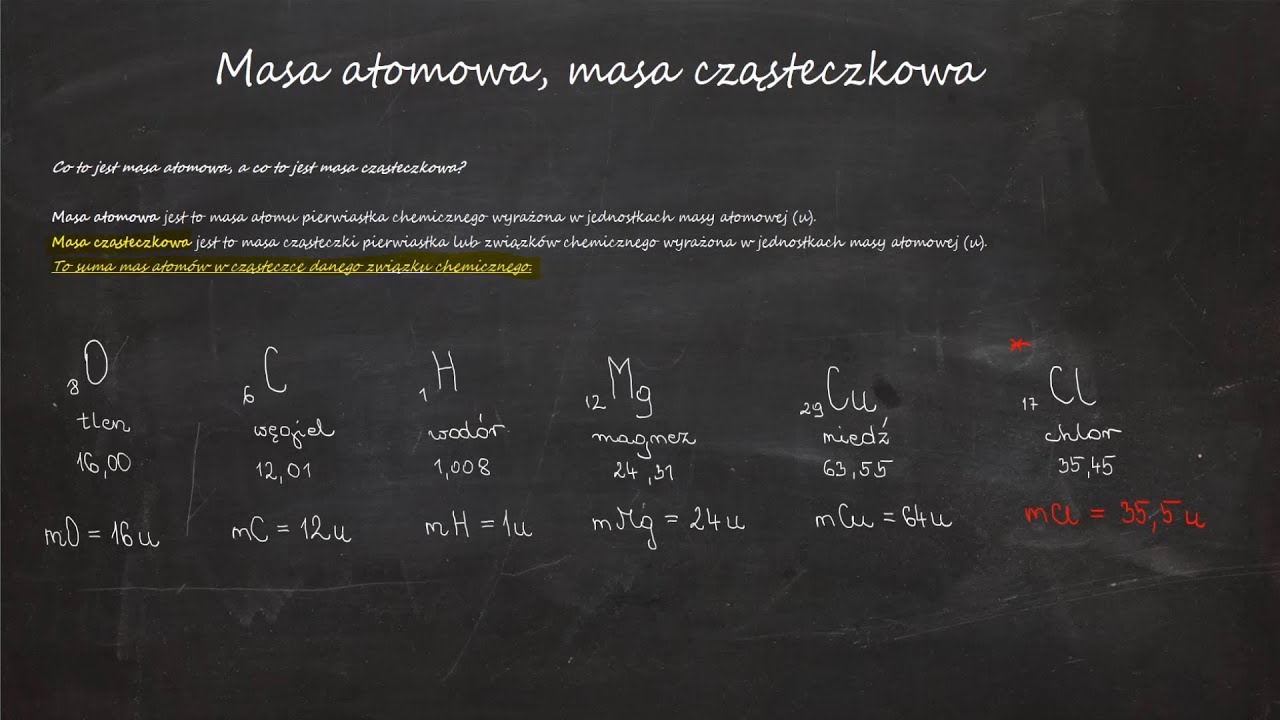 Masa atomowa, masa cząsteczkowa
Co to jest masa atomowa, a co to jest masa cząsteczkowa?
Masa atomowa jest to masa atomu pierwiastka chemicznego wyrażona w jednostkach masy atomowej (u).
Masa cząsteczkowa jest to masa cząsteczki pierwiastka lub związków chemicznego wyrażona w jednostkach masy atomowej (u).
To suma mas atomów w cząsteczce danego związku chemicznego.
8O 6C 1H 12Mg 29Cu 17Cl *
tlen węgiel wodór magnez miedź chlor
16,00 12,01 1,008 24,31 63,55 35,45
mO = 16u mC = 12u mH = 1u mMg = 24u mCu = 64u mCl = 35,5u